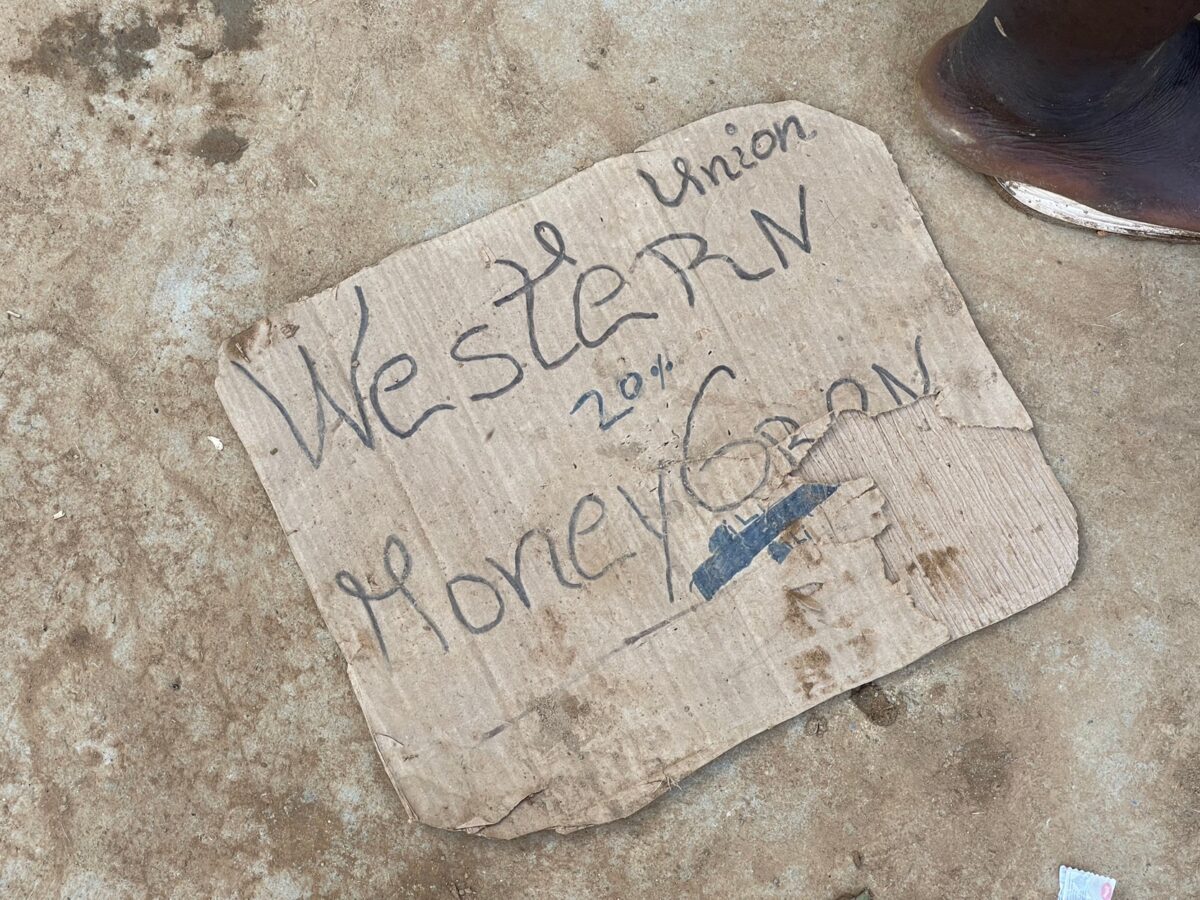 Union
WesteRN
20%
MoneyGRAN